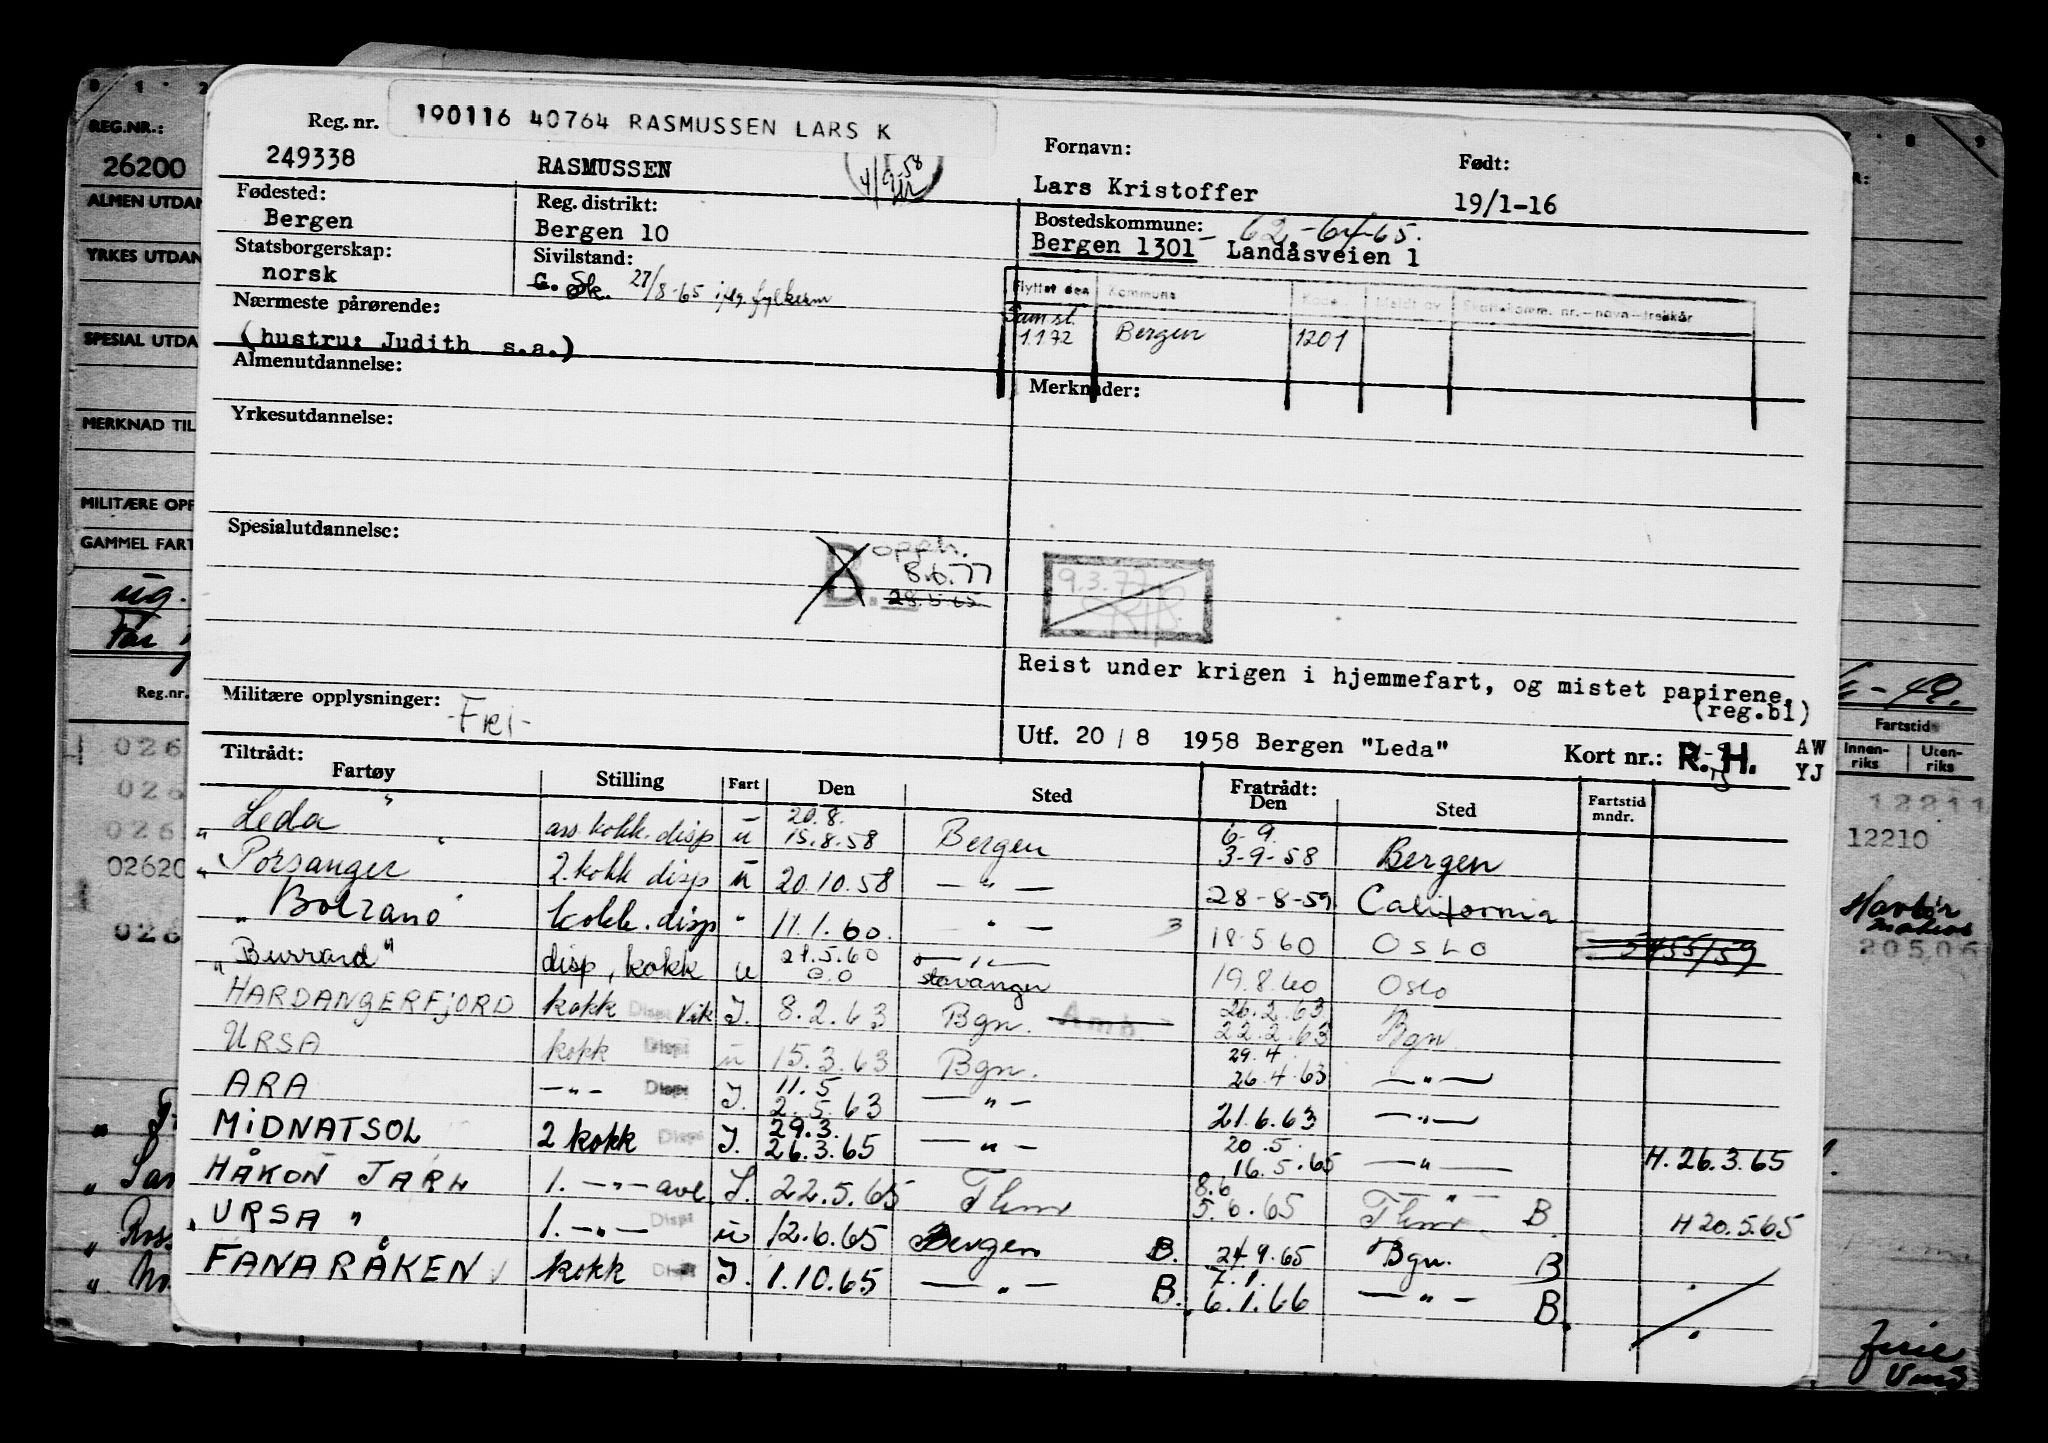 190116 40764 RASMUSSEN LARS K
Reg. nr.
249338
RASMUSSEN
4/9-58
Fornavn:
Lars Kristoffer
Født:
19/1-16
Fødested:
Bergen
Reg. distrikt:
Bergen 10
Bostedskommune: 62.-64-65.
Bergen 1301 - Landåsveien 1
Statsborgerskap:
norsk
Sivilstand:
G. Sk. 27/8-65
Nærmeste pårørende:
(hustru: Judith s.a.)
Flyttet den Kommune Kode Meldt av Skattekomm. nr.-navn-trekkår
Samst.
1.1 72 Bergen 1201
Almenutdannelse:
Merknader:
Yrkesutdannelse:
Spesialutdannelse:
B. opph.
8.6.77
28.5.65
9.3.77
Reist under krigen i hjemmefart, og mistet papirene.
(reg.bl)
Militære opplysninger: -Frei-
Utf. 20 / 8 1958 Bergen "Leda" Kort nr.: R. H. AW
YJ
Tiltrådt:
Fartøy Stilling Fart Den Sted Fratrådt: Den Sted Fartstid mndr.
20.8. 6-9
" Leda " ass. kokk. disp u 15.8.58 Bergen 3-9-58 Bergen
" Porsanger " 2. kokk disp u 20.10.58 — " — 28-8-59 California
" Bolzano " kokk. disp " 11.1.60. " — 18.5.60 OSLO
" Burrard " disp, kokk u 21.5.60 — " — stavanger 19.8.60 Oslo
26.2.63
HARDANGERFJORD kokk Disp Vik I. 8.2.63 Bgn. Amb 22.2.63 Bgn.
29.4
URSA kokk Disp u 15.3.63 Bgn. 26.4.63 — " —
11.5
ARA — " — Disp I. 2.5.63 — " — 21.6.63 — " —
29.3. 20.5.
MIDNATSOL 2 kokk Disp I. 26.3.65 — " — 16.5.65 — " — H. 26.3.65
8.6
HÅKON JARL 1. — " — avl I. 22.5.65 Thm 5.6.65 Thm B H 20.5.65
" URSA " 1. — " — Disp u 12.6.65 Bergen B. 24.9.65 Bgn. B
7.1.
FANARÅKEN kokk Disp I. 1.10.65 — " — B. 6.1.66 — " — B.
REG.NR.:
26200
ALMEN UTDAN
YRKES UTDAN
SPESIAL UTDA
MERKNAD TIL
MILITÆRE OPP
GAMMEL FART
ug.
Reg.nr.
026
026
026
02620
026
Fartstid
Innen-riks Uten-riks
12211
12210
20506